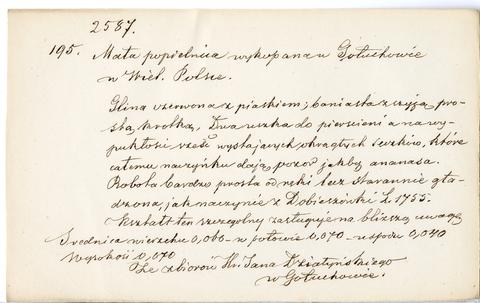 2587.
195. Mała popielnica wykopana w Gołuchowie
w Wiel. Polsce.
Glina czerwona z piaskiem; baniasta z szyją pro-
stą, krótką, Dwa uszka do pierścieni a na wy-
pukłości sześć wystających okrągłych sęczków, które
całemu naczyniku dają pozór jakby ananasa.
Robota bardzo prosta od ręki lecz starannie gła-
dzona, jak naczynie z Dobieszówki L. 1755.
Kształt ten szczególny zasługuje na bliższą uwagę
Średnica wierzchu 0,060 – w połowie 0,070 – u spodu 0,040
Wysokość 0,070
Ze zbiorów Hr. Jana Działyńskiego
w Gołuchowie.